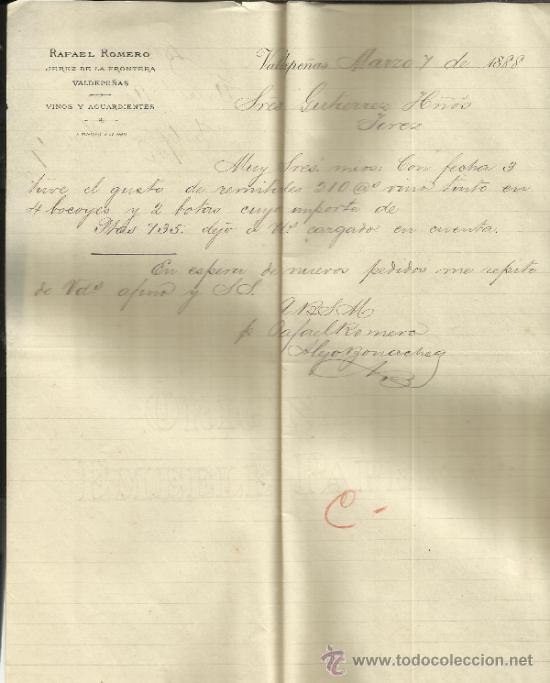 RAFAEL ROMERO
JEREZ DE LA FRONTERA
VALDEPEÑAS
VINOS Y AGUARDIENTES
Valdepeñas Marzo 7 de 1888
Sres Gutierrez Hños
Jerez
Muy Sres mios: Con fecha 3
tuve el gusto de remitirles 210 @s vino tinto en
4 bocoyes y 2 botas cuyo importe de
Ptas 735. dejo á Vs cargado en cuenta.
En espera de nuevos pedidos me repito
de Vds afmo y S.S.
Q B S M
p Rafael Romero
C-
www.todocoleccion.net